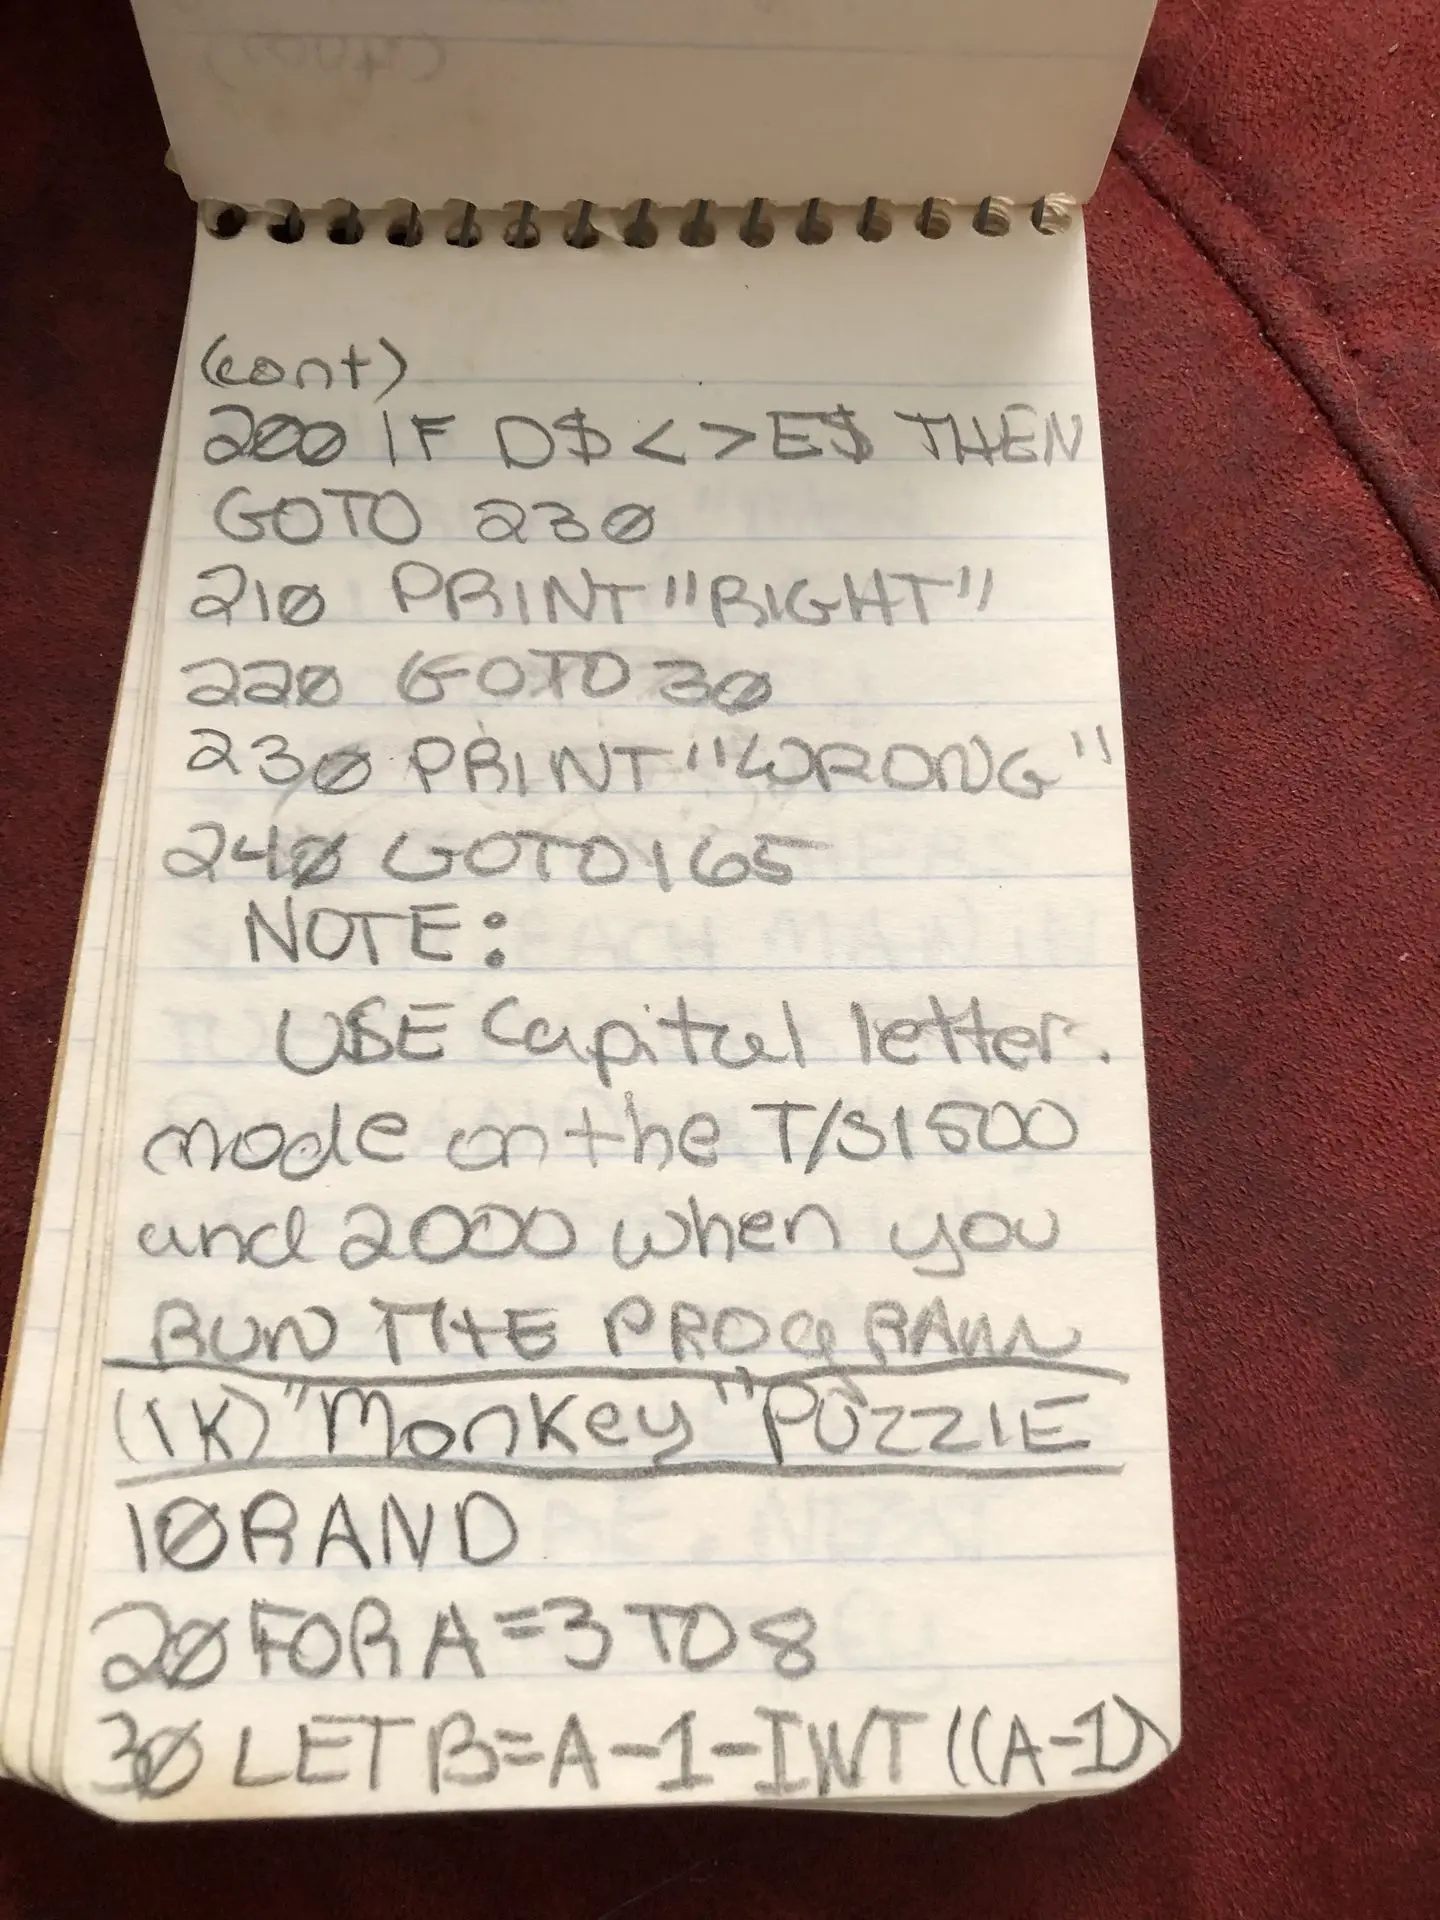 (cont)
200 IF D$ <> E$ THEN
GOTO 230
210 PRINT "RIGHT"
220 GOTO 30
230 PRINT "WRONG"
240 GOTO 165
NOTE:
USE Capital letter.
mode on the T/S1500
and 2000 when you
RUN THE PROGRAM
(1K) "Monkey" PUZZLE
10 RAND
20 FOR A = 3 TO 8
30 LET B = A - 1 - INT ((A-1)